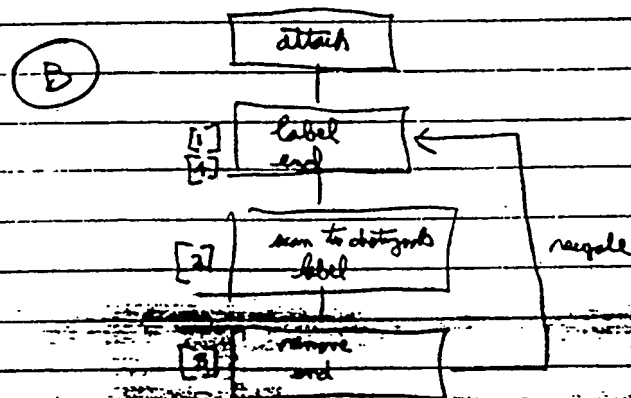 attach
B
[1] label
[4] end
[2] scan to distinguish
label
recycle
[3] remove
end